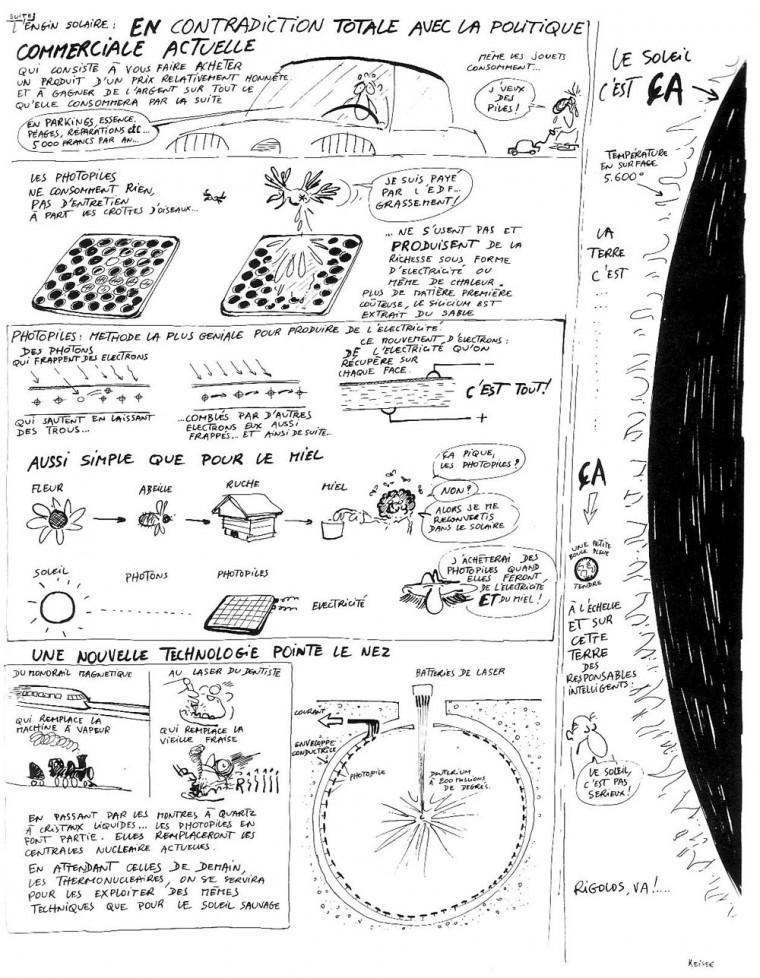 SUITE:
L'ENGIN SOLAIRE : EN CONTRADICTION TOTALE AVEC LA POLITIQUE
COMMERCIALE ACTUELLE
QUI CONSISTE À VOUS FAIRE ACHETER
UN PRODUIT D'UN PRIX RELATIVEMENT HONNÊTE
ET À GAGNER DE L'ARGENT SUR TOUT CE
QU'ELLE CONSOMMERA PAR LA SUITE
EN PARKINGS, ESSENCE,
PÉAGES, RÉPARATIONS etc...
5000 FRANCS PAR AN...
MÊME LES JOUETS
CONSOMMENT...
J'VEUX
DES
PILES!
LES PHOTOPILES
NE CONSOMMENT RIEN,
PAS D'ENTRETIEN
À PART LES CROTTES D'OISEAUX...
JE SUIS PAYÉ
PAR L'EDF...
GRASSEMENT!
... NE S'USENT PAS ET
PRODUISENT DE LA
RICHESSE SOUS FORME
D'ELECTRICITÉ OU
MÊME DE CHALEUR.
PLUS DE MATIÈRE PREMIÈRE
COÛTEUSE, LE SILICIUM EST
EXTRAIT DU SABLE
PHOTOPILES : METHODE LA PLUS GENIALE POUR PRODUIRE DE L'ELECTRICITÉ.
DES PHOTONS
QUI FRAPPENT DES ELECTRONS
QUI SAUTENT EN LAISSANT
DES TROUS...
...COMBLÉS PAR D'AUTRES
ELECTRONS EUX AUSSI
FRAPPÉS... ET AINSI DE SUITE...
CE MOUVEMENT D'ÉLECTRONS :
DE L'ELECTRICITÉ QU'ON
RÉCUPÈRE SUR
CHAQUE FACE.
–
+
C'EST TOUT!
AUSSI SIMPLE QUE POUR LE MIEL
FLEUR
ABEILLE
RUCHE
MIEL
ÇA PIQUE,
LES PHOTOPILES?
NON?
ALORS JE ME
RECONVERTIS
DANS LE SOLAIRE
SOLEIL
PHOTONS
PHOTOPILES
ELECTRICITÉ
J'ACHÈTERAI DES
PHOTOPILES QUAND
ELLES FERONT
DE L'ÉLECTRICITÉ
ET DU MIEL!
UNE NOUVELLE TECHNOLOGIE POINTE LE NEZ
DU MONORAIL MAGNETIQUE
QUI REMPLACE LA
MACHINE À VAPEUR
AU LASER DU DENTISTE
QUI REMPLACE LA
VIEILLE FRAISE
EN PASSANT PAR LES MONTRES À QUARTZ
À CRISTAUX LIQUIDES... LES PHOTOPILES EN
FONT PARTIE. ELLES REMPLACERONT LES
CENTRALES NUCLEAIRE ACTUELLES.
EN ATTENDANT CELLES DE DEMAIN,
LES THERMONUCLEAIRES, ON SE SERVIRA
POUR LES EXPLOITER DES MÊMES
TECHNIQUES QUE POUR LE SOLEIL SAUVAGE
BATTERIES DE LASER
COURANT
ENVELOPPE
CONDUCTRICE
PHOTOPILE
DEUTERIUM
À 200 MILLIONS
DE DEGRÉS.
LE SOLEIL
C'EST ÇA
TEMPÉRATURE
EN SURFACE
5.600°
LA
TERRE
C'EST
ÇA
UNE PETITE
BOULE BLEUE
TENDRE
À L'ECHELLE
ET SUR
CETTE
TERRE
DES
RESPONSABLES
INTELLIGENTS:
LE SOLEIL,
C'EST PAS
SERIEUX!
RIGOLOS, VA!....
REISER